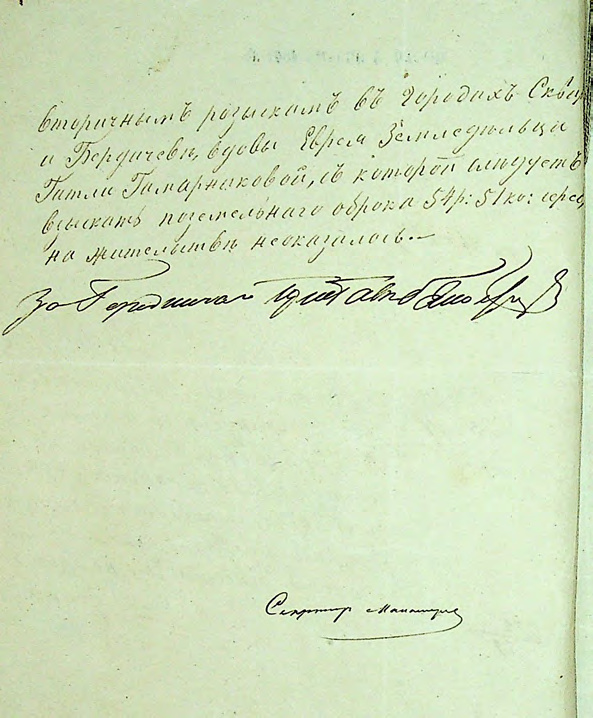 вторичнымъ розыскамъ въ Городахъ
и Бердичевѣ, вдовы Еврея Земледѣльца
Гитли Гамарниковой, съ которой слѣдуетъ
взыскать поземельнаго оброка 54 р: 51 ко: сереб
на жительствѣ неоказалось.—
За Городничаго Приставъ
Секретарь